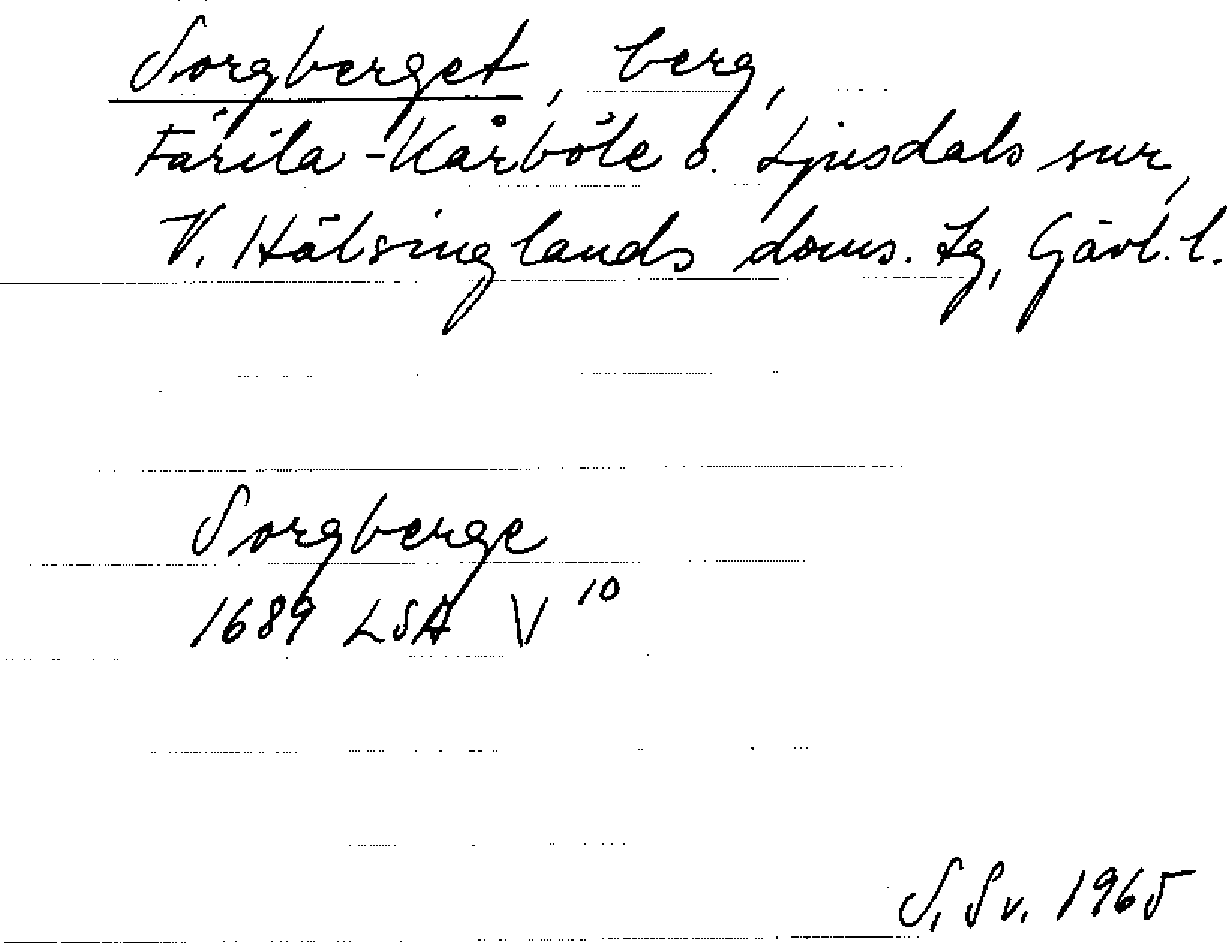 Sorgberget, berg,
Färila-Kårböle o. Ljusdals snr,
V. Hälsinglands doms. tg, Gävl. l.
Sorgberge
1689 LSA V 10
S. Sv. 1965